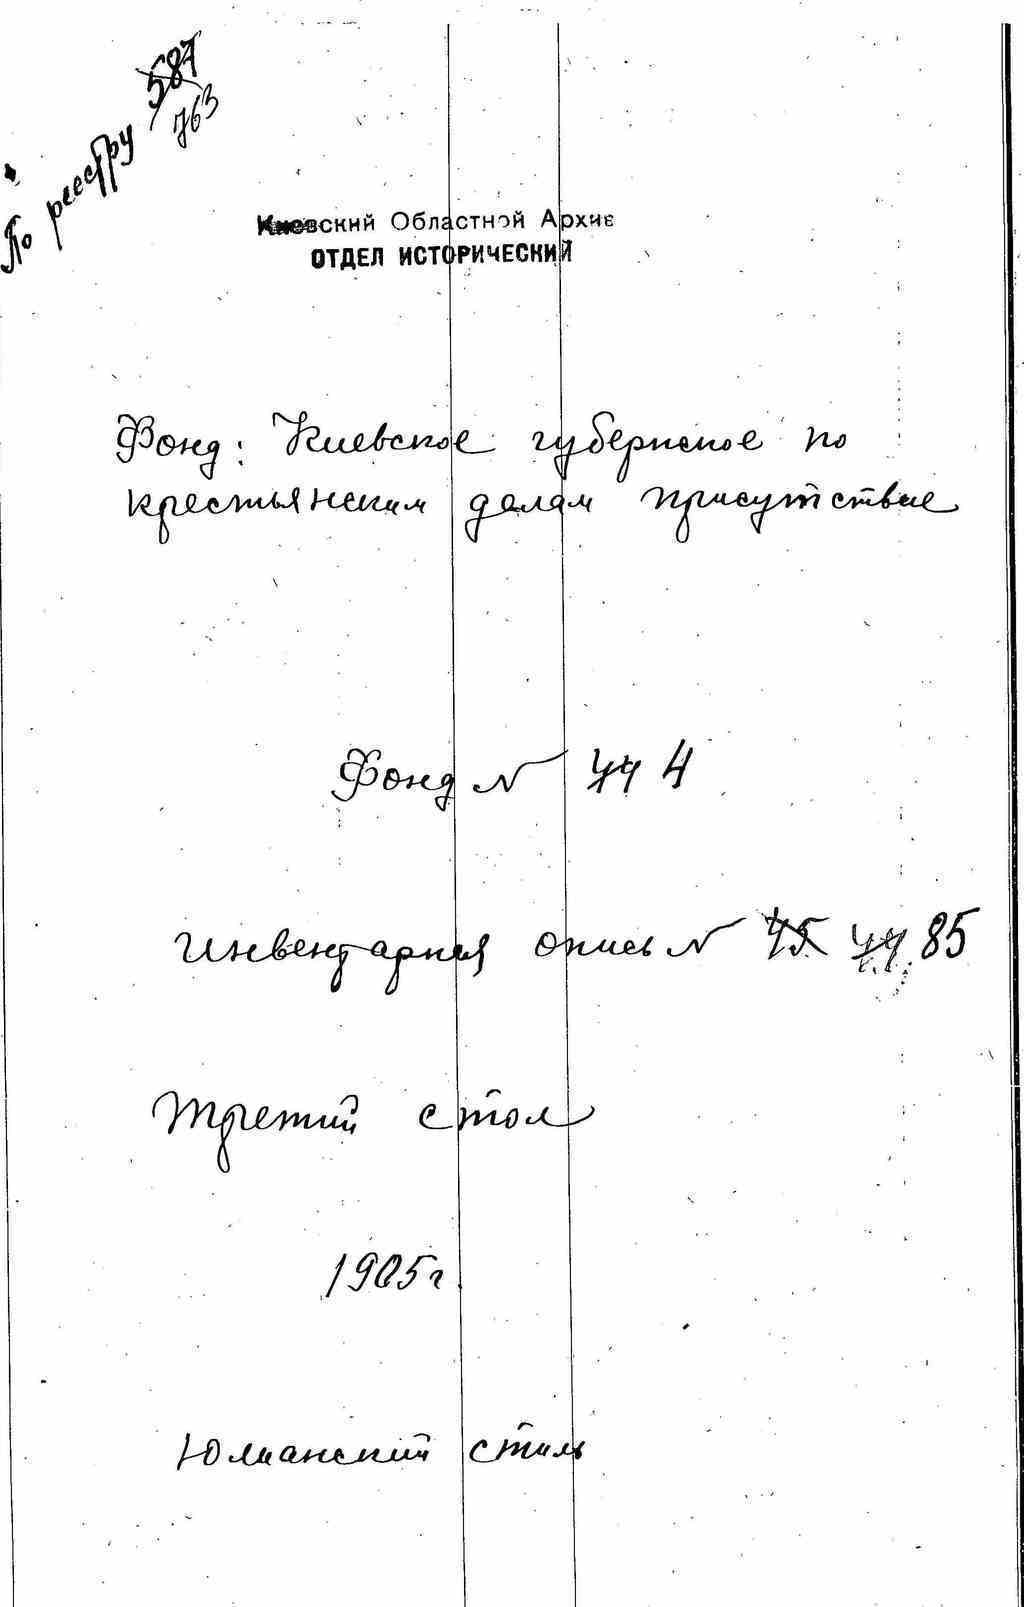 По реестру 587
763
Киевский Областной Архив
ОТДЕЛ ИСТОРИЧЕСКИЙ
Фонд: Киевское губернское по
крестьянским делам присутствие
Фонд N 44 4
Инвентарная опись N 45 44 85
Третий стол
1905 г.
Юлианский стиль